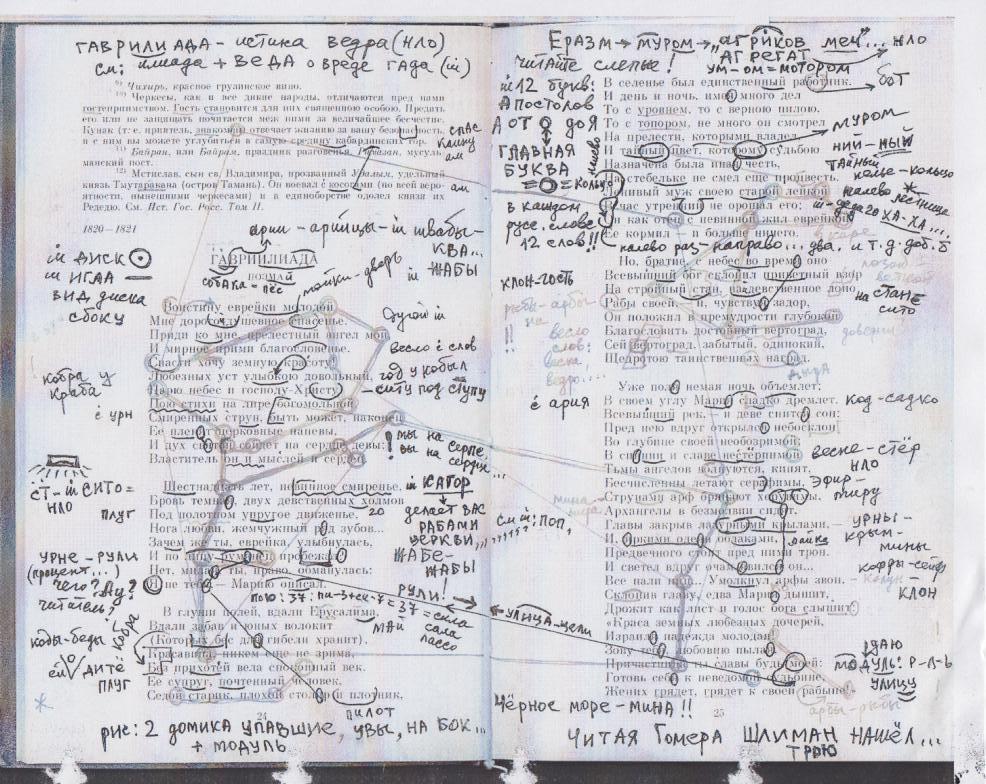 ГАВРИЛИАДА - истина ведра (НЛО)
см: илиада + ВЕДА о вреде ГАДА (й)
⁹) Чихирь, красное грузинское вино.
¹⁰) Черкесы, как и все дикие народы, отличаются пред нами
гостеприимством. Гость становится для них священною особою. Предать
его или не защищать почитается меж ними за величайшее бесчестие.
Кунак (т. е. приятель, знакомый) отвечает жизнию за вашу безопасность,
и с ним вы можете углубиться в самую средину кабардинских гор.
¹¹) Байран, или Байрам, праздник разговенья. Рамазан, мусуль-
манский пост.
¹²) Мстислав, сын св. Владимира, прозванный Удалым, удельный
князь Тмутаракана (остров Тамань). Он воевал с косогами (по всей веро-
ятности, нынешними черкесами) и в единоборстве одолел князя их
Редедю. См. Ист. Гос. Росс. Том II.
1820—1821
арии - арийцы - й швабы -
КВА...
й ЖАБЫ
ГАВРИИЛИАДА
поэма
собака = пёс
й ДИСК
й ИГЛА
ВИД диска
сбоку
Воистину еврейки молодой
Мне дорого душевное спасенье.
Приди ко мне, прелестный ангел мой
И мирное прими благословенье.
Спасти хочу земную красоту!
Любезных уст улыбкою довольный,
Царю небес и господу-Христу
Пою стихи на лире богомольной.
Смиренных струн, быть может, наконец
Ее пленят церковные напевы,
И дух святой сойдет на сердце девы;
Властитель он и мыслей и сердец.
весло ё слов
год у кобыл
ситу под ступу
кобра у
краба
ё урн
! мы на серпе,
вы на сердце...
Шестнадцать лет, невинное смиренье,
Бровь темная, двух девственных холмов
Под полотном упругое движенье,
Нога любви, жемчужный ряд зубов...
Зачем же ты, еврейка, улыбнулась,
И по лицу румянец пробежал?
Нет, милая, ты, право, обманулась:
Я не тебя,— Марию описал.
й КАГОР
делает ВАС
РАБАМИ
ЦЕРКВИ,
ЖАБЕ -
ЖАБЫ
ст - й СИТО =
НЛО
ПЛУГ
урне - рули
(процент...)
чего? Ау?
читатель?
РУЛИ!
УЛИЦА - цели
МАЙ
сила
сала
лассо
В глуши полей, вдали Ерусалима,
Вдали забав и юных волокит
(Которых бес для гибели хранит),
Красавица, никем еще не зрима,
Без прихотей вела спокойный век.
Ее супруг, почтенный человек,
Седой старик, плохой столяр и плотник,
коды-беды
кобра
дитё
ПЛУГ
24
пилот
рис: 2 домика упавшие, увы, на бок...
+ модуль
Еразм → муром → „агриков меч"... НЛО
АГРЕГАТ
читайте слепые!
УМ-ОМ = МОТОРОМ
бот
й 12 букв:
Апостолов
А от О до Я
ГЛАВНАЯ
БУКВА
= кольцо
в каждом
русс. слове
12 слов!!
В селенье был единственный работник.
И день и ночь, имея много дел
То с уровнем, то с верною пилою,
То с топором, не много он смотрел
На прелести, которыми владел,
И тайный цвет, которому судьбою
Назначена была иная честь,
На стебельке не смел еще процвесть.
Ленивый муж своею старой лейкой
В час утренний не орошал его;
Он как отец с невинной жил еврейкой,
Ее кормил — и больше ничего.
МУРОМ
НИЙ - НЫЙ
тайный
кольцо
налево
лестница
ХА-ХА...
налево раз - направо... два, и т.д.
Но, братие, с небес во время оно
Всевышний бог склонил приветный взор
На стройный стан, на девственное лоно
Рабы своей — и, чувствуя задор,
Он положил в премудрости глубокой
Благословить достойный вертоград,
Сей вертоград, забытый, одинокий,
Щедротою таинственных наград.
клон-гость
весло
слов:
весна,
ведро...
на стане
сито
Уже поля немая ночь объемлет;
В своем углу Мария сладко дремлет.
Всевышний рек,— и деве снится сон:
Пред нею вдруг открылся небосклон
Во глубине своей необозримой;
В сиянии и славе нестерпимой
Тьмы ангелов волнуются, кипят,
Бесчисленны летают серафимы,
Струнами арф бряцают херувимы,
Архангелы в безмолвии сидят,
Главы закрыв лазурными крылами,—
И, яркими одеян облаками,
Предвечного стоит пред ними трон.
И светел вдруг очам явился он...
Все пали ниц... Умолкнул арфы звон.
Склонив главу, едва Мария дышит,
Дрожит как лист и голос бога слышит:
«Краса земных любезных дочерей,
Израиля надежда молодая!
Зову тебя, любовию пылая,
Причастница ты славы будь моей:
Готовь себя к неведомой судьбине,
Жених грядет, грядет к своей рабыне!»
ё ария
код-садко
весне - стёр
НЛО
ЭФИР -
пиру
лайка
урны -
крым -
мины
КЛОН
МОДУЛЬ: Р-Л-Ь
УЛИЦУ
арбы-рыбы
Чёрное море - мина!!
25
Читая Гомера Шлиман нашёл...
трою